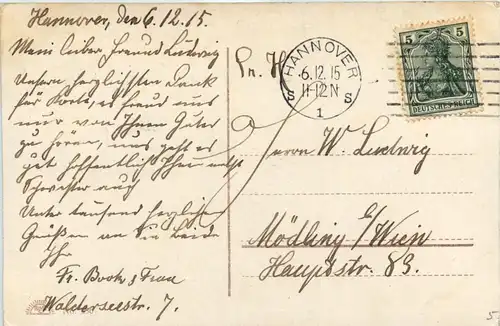 Hannover, den 6.12.15.
Mein lieber Freund Ludwig
Unsern herzlichsten Dank
für Karte, es freud uns
nur von Ihnen Gutes
zu hören, uns geht es
gut hoffentlich Ihnen nebst
Schwester auch
Unter tausend herzlichen
Grüßen an Sie beide
Ihr
Fr. Bock & Frau
Walderseestr. 7.
HANNOVER
6.12.15
11-12N
S S
1
5 5
DEUTSCHES REICH
Herrn W. Ludwig
Mödling b/Wien
Hauptstr. 83.